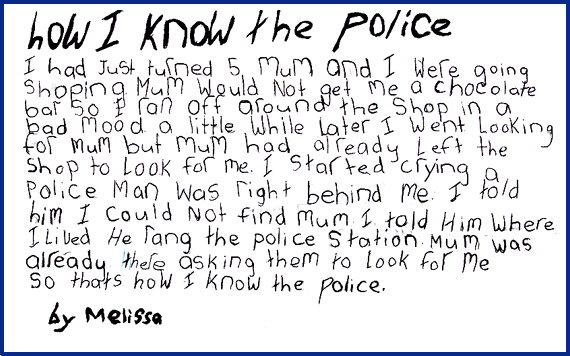 how I know the police
I had Just turned 5 Mum and I Were going
Shoping Mum Would Not get me a chocolate
bar So I ran off around the Shop in a
bad Mood a little While Later I Went Looking
for Mum but Mum had already Left the
Shop to Look for me. I Started crying a
Police Man Was right behind Me. I told
him I Could Not find Mum I told Him Where
I Lived He rang the police Station Mum was
already there asking them to Look for Me
So thats how I know the police.
by Melissa